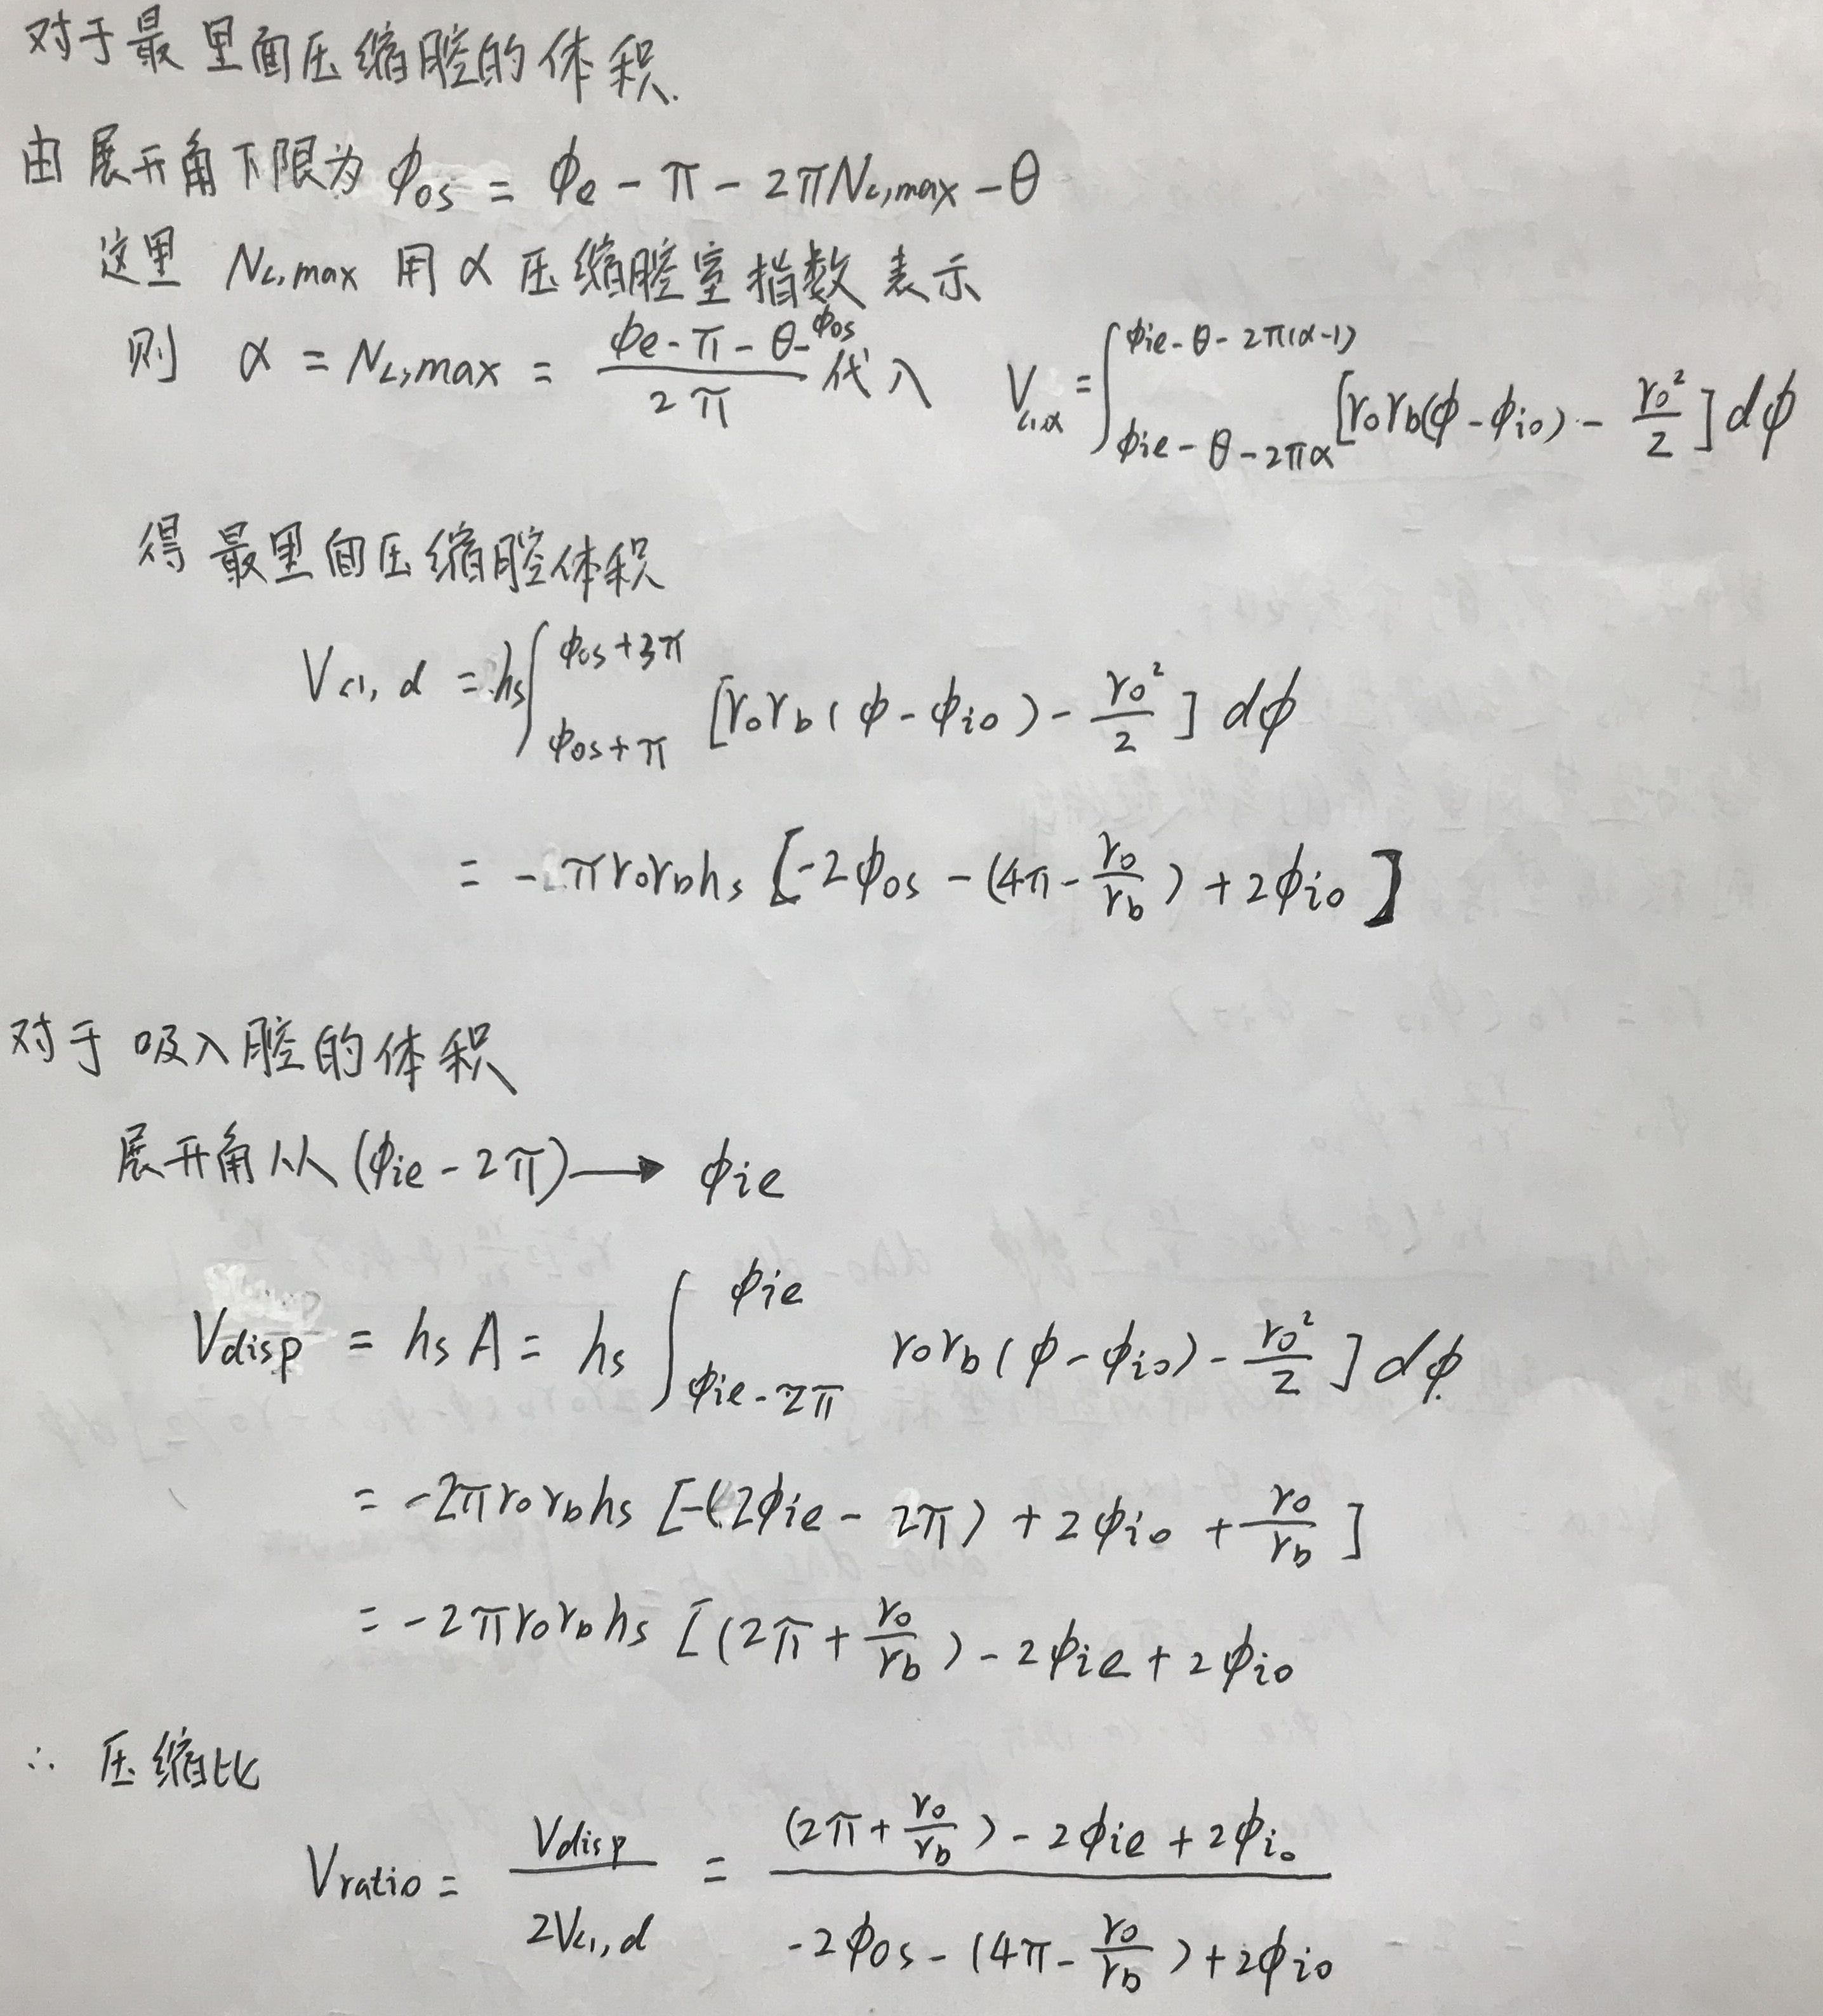 对于最里面压缩腔的体积.
由展开角下限为 ϕos = ϕe - π - 2πNc,max - θ
这里 Nc,max 用 α 压缩腔室指数表示
则 α = Nc,max = (ϕe - π - θ - ϕos)/(2π) 代入 Vc1,α = ∫_{ϕie - θ - 2πα}^{ϕie - θ - 2π(α-1)} [rorb(ϕ - ϕio) - ro²/2] dϕ
得最里面压缩腔体积
Vc1,d = hs ∫_{ϕos+π}^{ϕos+3π} [rorb(ϕ - ϕio) - ro²/2] dϕ
= -πrorbhs [-2ϕos - (4π - ro/rb) + 2ϕio]
对于吸入腔的体积
展开角从 (ϕie - 2π) → ϕie
Vdisp = hsA = hs ∫_{ϕie-2π}^{ϕie} rorb(ϕ - ϕio) - ro²/2] dϕ
= -2πrorbhs [-(2ϕie - 2π) + 2ϕio + ro/rb]
= -2πrorbhs [(2π + ro/rb) - 2ϕie + 2ϕio
∴ 压缩比
Vratio = Vdisp/(2Vc1,d) = ((2π + ro/rb) - 2ϕie + 2ϕio)/(-2ϕos - (4π - ro/rb) + 2ϕio)